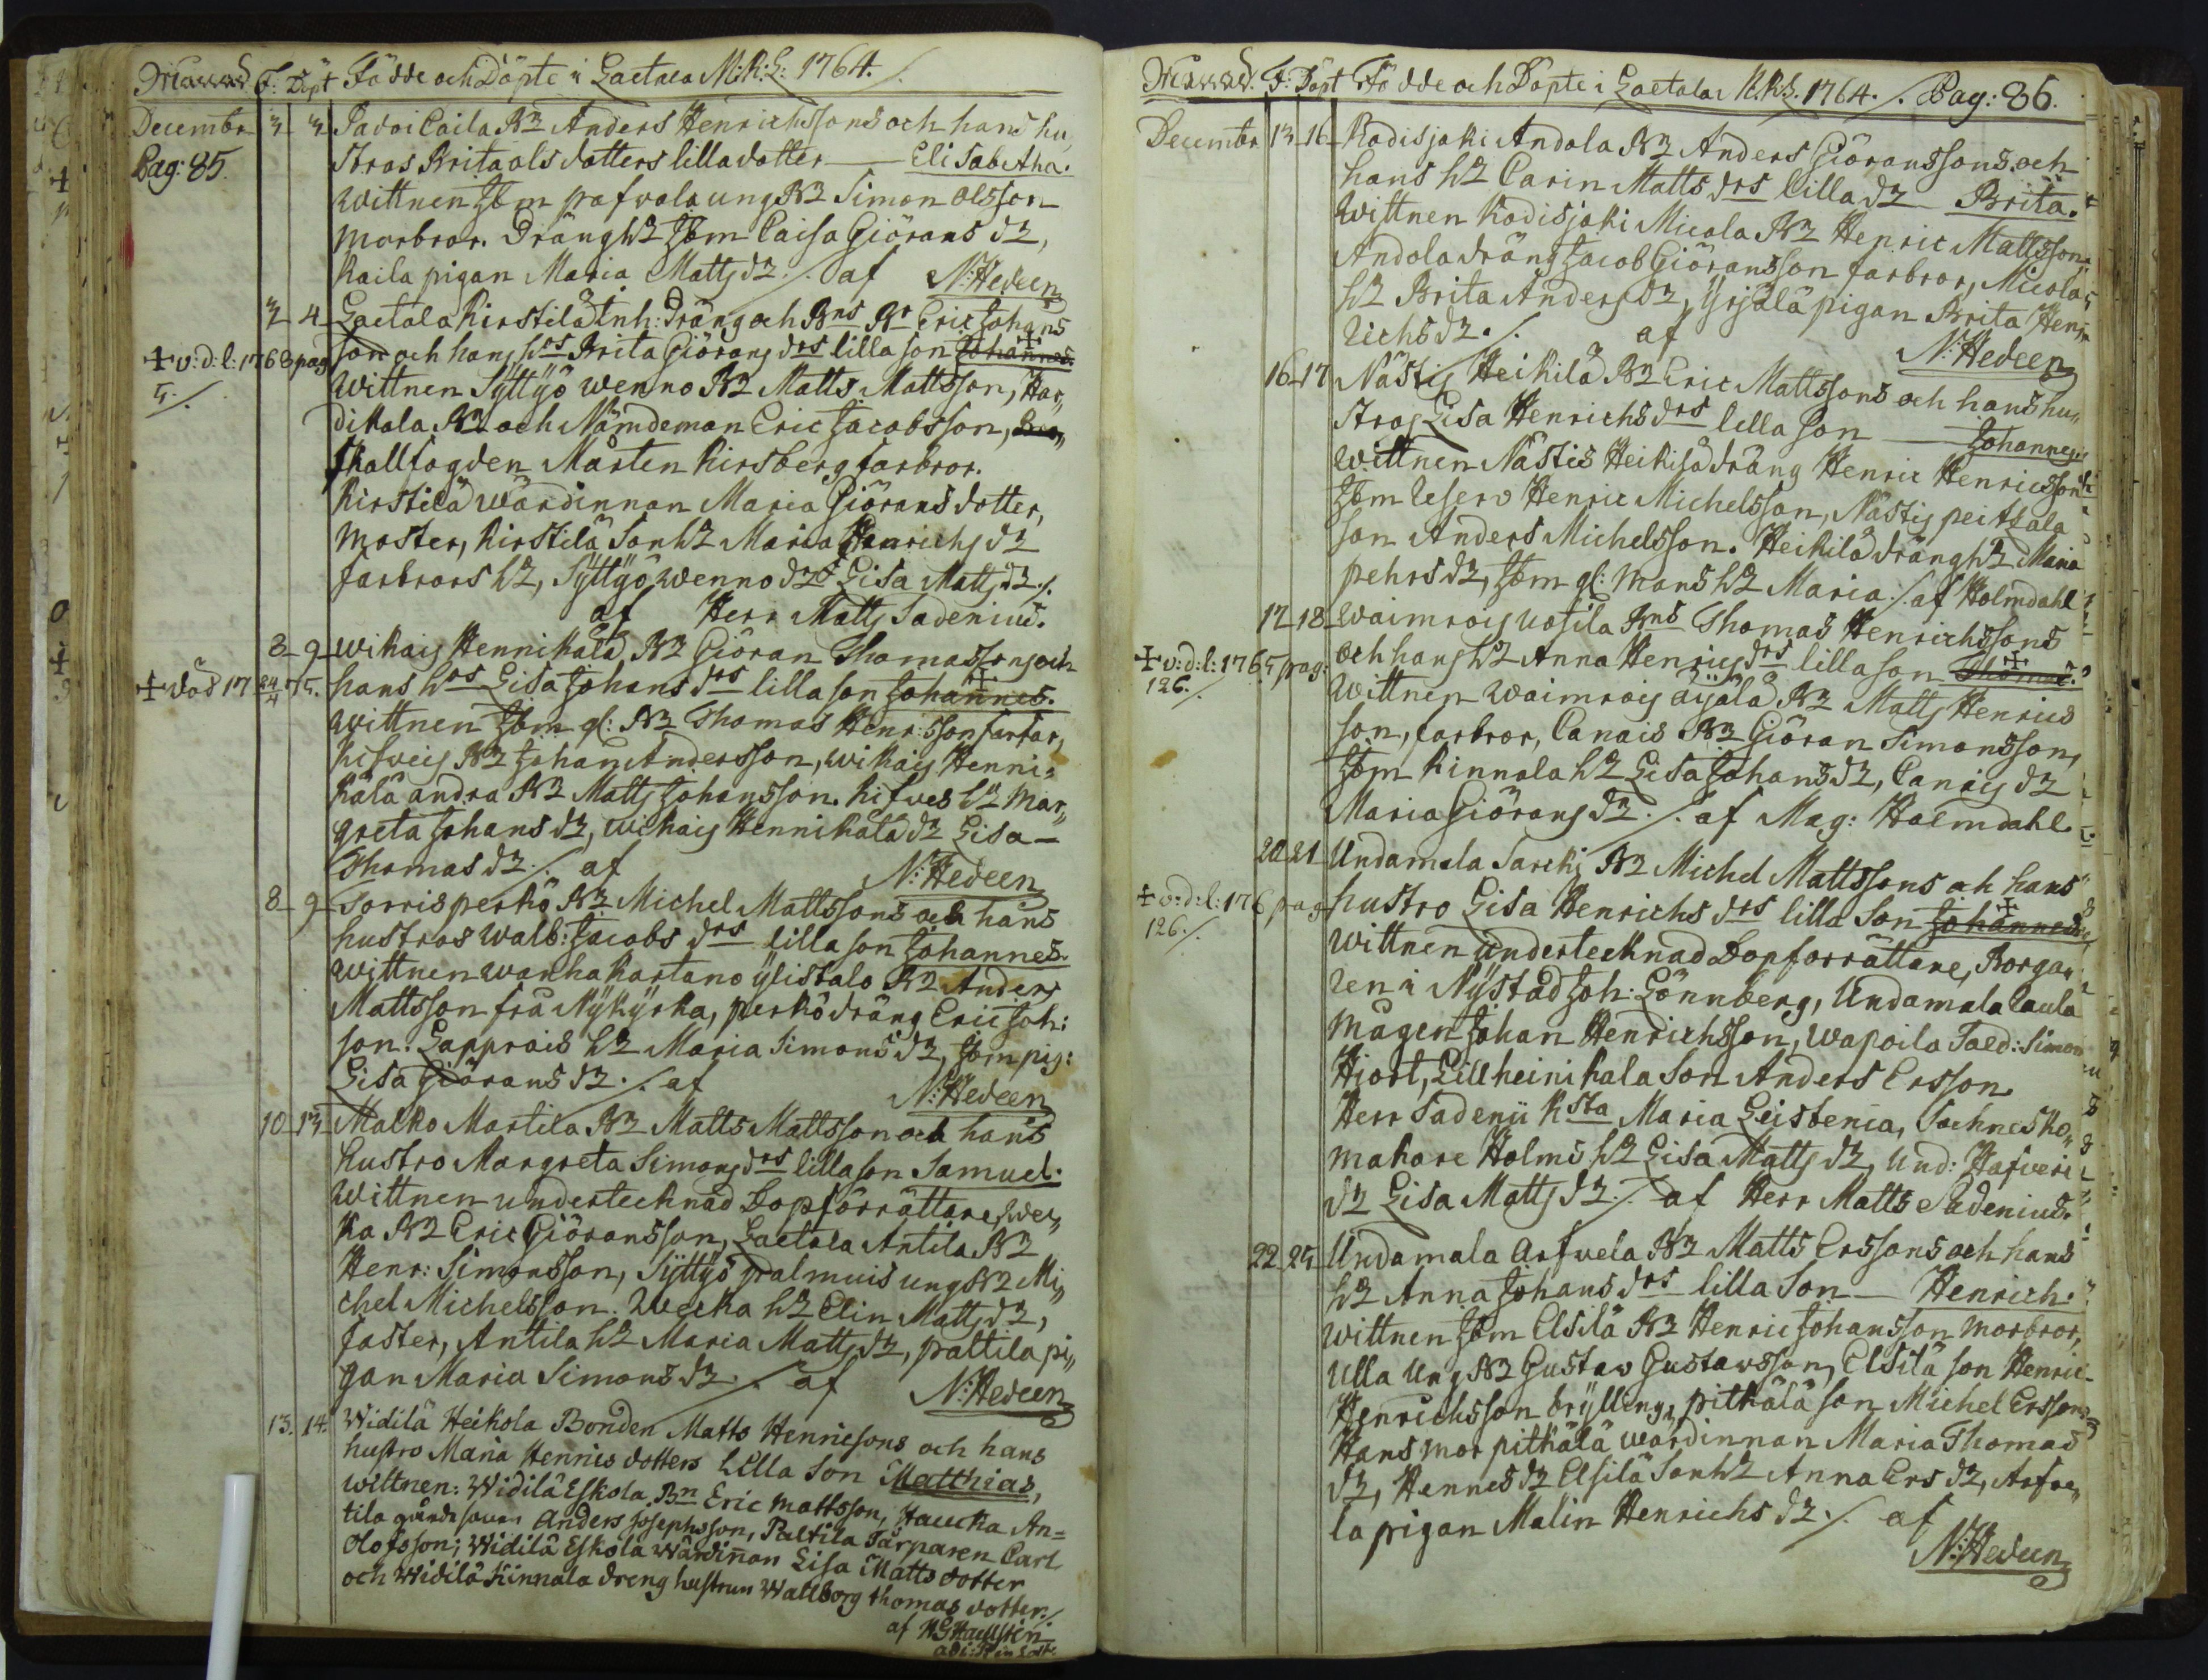 Månad. F: Döpt Födde och Döpte i Laetala M:R:S: 1764. /.
Decembr 3 3 Padoi Caila B2 Anders Henrichssons och hans hu„
Pag: 85. stros Brita ols dotters lilla dotter — Elisabetha.
wittnen Ibm pafvola ung B2 Simon Olsson
morbror. Dräng h2 Ibm Caisa Giörans d2,
Kaila pigan Maria Matts d2 ./. af N: Hedeen
3 4 Laetala Kirstilä Inh: Dräng och Bns Br Eric Johans
+ v: d: l: 1768 pag son och hans hos Brita Giörans drs lilla son Johannes.
5 ./. wittnen Syttyö wenno B2 Matts Mattsson, Har„
dikala B2 och Nämdeman Eric Jacobsson,
skallfogden Mårten Kirsberg farbror.
Kirstilä wärdinnan Maria Giörans dotter,
Moster, Kirstilä Son h2 Maria Henrichs d2
farbrors h2, Syttyö wenno d2s Lisa Matts d2 ./.
af Herr Matts Sadenius.
8 9 wikais Hennikälä B2 Giöran Thomassons och
+ död 17 24/4 75. hans hos Lisa Johans drs lilla son Johannes.
wittnen Ibm gl: B2 Thomas Henr:sson farfar,
hifveis B2 Johan Andersson, wikais Henni„
kälä andra B2 Matts Johansson. hifves h2 Mar„
greta Johans d2, wikais Hennikälä d2 Lisa —
Thomas d2 ./. af N: Hedeen
8 9 Sorris perkö B2 Michel Mattssons och hans
hustros Walb: Jacobs drs lilla son Johannes.
wittnen wanhakartano ylistalo B2 Anders
Mattsson frå Nykyrka, perkö dräng Eric Joh:
son. Lapprois h2 Maria Simons d2, Ibm pig:
Lisa Giörans d2 ./. af N: Hedeen
10 13 Malko Martila B2 Matts Mattsson och hans
hustro Margreta Simons drs lilla son Samuel.
Wittnen undertecknad Dopförrättare, Wec„
ka B2 Eric Giöransson, Laetala Antila B2
Henr: Simonsson, Syttyö palmuis ung B2 Mi„
chel Michelsson. Wecka h2 Elin Matts d2,
faster, Antila h2 Maria Matts d2, paltila pi„
gan Maria Simons d2 ./. af N: Hedeen
13. 14. Widilä Heikola Bonden Matts Henricsons och hans
hustro Maria Henrics dotters Lilla Son Matthias,
wittnen: Widilä Eskola Bn Eric Mattsson, Haucka An=
tila gårds sonen Anders Josephsson, Paltila Tarparen Carl
Olofsson; Widilä Eskola Wärdiñan Lisa Matts dotter
och Widilä Kinnala dreng hustrun Wallborg thomas dotter ./.
af
Månad. F: Döpt Födde och Döpte i Laetala M.R.S. 1764. /. Pag: 86.
Decembr 13 16 Kodisjoki Andola B2 Anders Giöranssons och
hans h2 Carin Matts drs lilla d2 Brita.
wittnen Kodisjoki Micola B2 Henric Mattsson,
Andola dräng Jacob Giöransson farbror, Micola
h2 Brita Anders d2, Yrjälä pigan Brita Hen„
richs d2 ./. af N: Hedeen
16 17 Nästis Heikilä B2 Eric Mattssons och hans hu„
stros Lisa Henrichs drs lilla son — Johannes.
wittnen Nästis Heikilä dräng Henric Henricsson
Ibm Reserv Henric Michelsson, Nästis peitsala
son Anders Michelsson. Heikilä dräng h2 Maria
pehrs d2, Ibm gl: Mans h2 Maria ./. af Holmdahl
17 18 waimrois uosila Bns Thomas Henrichssons
+ v: d: l: 1765 pag: och hans h2 Anna Henrics drs lilla son Thomas.
126. ./. wittnen waimrois äijälä B2 Matts Henrics
son, farbror, Canais B2 Giöran Simonsson,
Ibm Kinnala h2 Lisa Johans d2, Canais d2
Maria Giörans d2 ./. af Mag: Holmdahl.
20 21 Undamala Sarckj B2 Michel Mattssons och hans
+ v: d: l: 176 pag hustro Lisa Henrichs drs lilla Son Johannes.
126 ./. wittnen undertecknad Dopförrättare, Borga„
ren i Nystad Joh: Lönnberg, Undamala Caula
mågen Johan Henrichsson, wapoila Sold: Simon
Hiort, Lillheinikala Son Anders Ersson.
Herr Sadenii Ksta Maria Leistenia, Sochnesko„
makare Holms h2 Lisa Matts d2, Und: Hafveri
d2 Lisa Matts d2 ./. af Herr Matts Sadenius.
22 25 Undamala Arfvela B2 Matts Erssons och hans
h2 Anna Johans drs lilla Son — Henrich.
wittnen Ibm Elsilä B2 Henric Johansson Morbror,
Ulla Ung B2 Gustav Gustavsson, Elsilä son Henric
Henrichsson brylling, pitkälä son Michel Ersson
Hans mor pitkälä wärdinnan Maria Thomas
d2, Hennes d2 Elsilä Son h2 Anna Ers d2, Arfve„
la pigan Malin Henrichs d2 ./. af
N: Hedeen